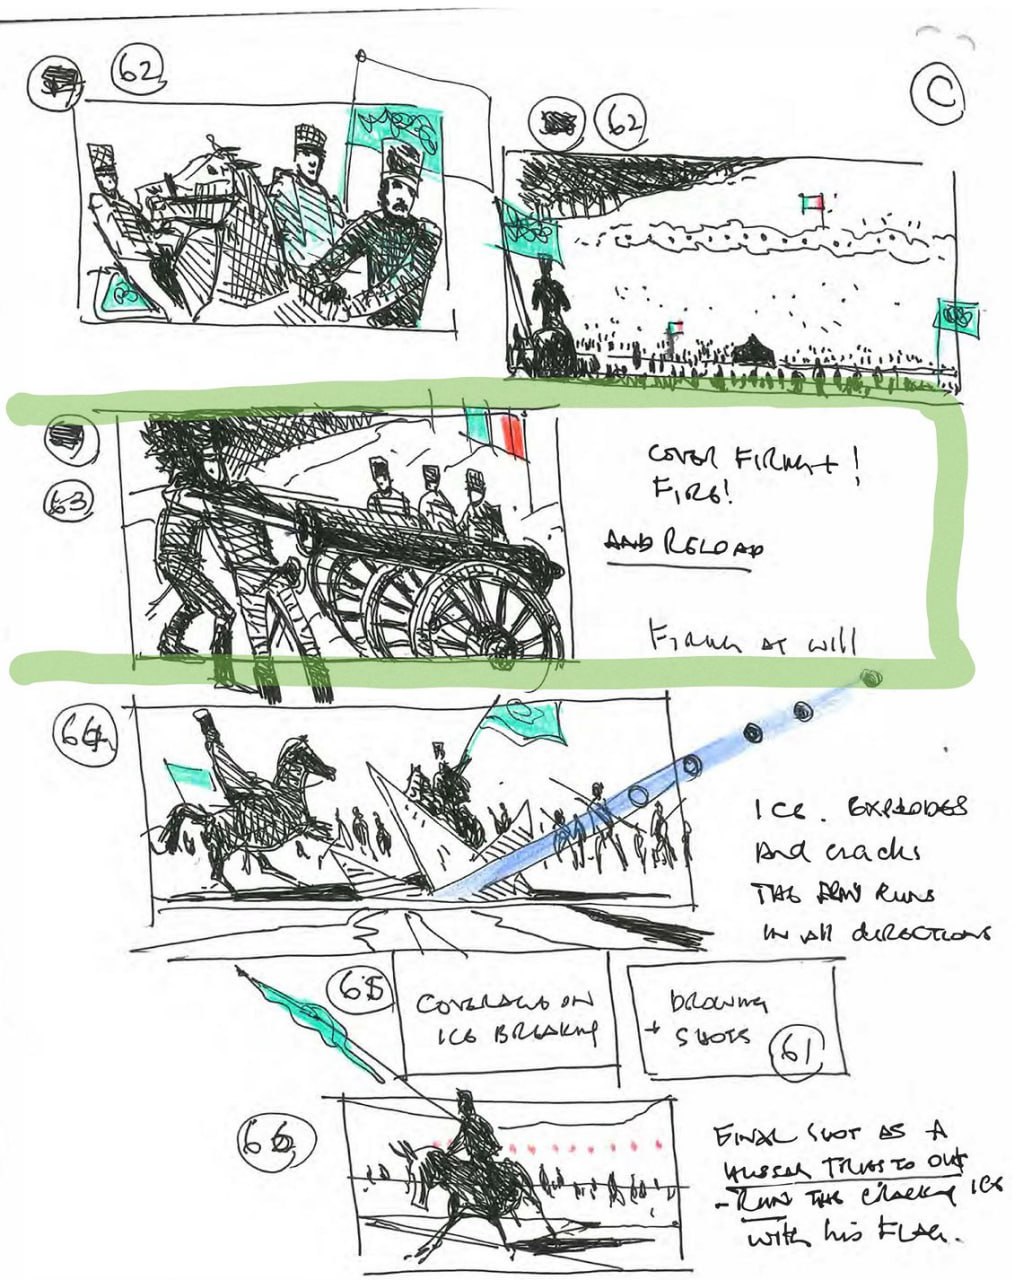 62
62
C
63
COVER FIRING + !
FIRE!
AND RELOAD
FIRING AT WILL
64
ICE. EXPLODES
AND CRACKS
THE RUNS
IN ALL DIRECTIONS
65
COVERAGE ON
ICE BREAKING
DROWING
+ SHOTS
61
66
FINAL SHOT AS A
HUSSAR TRIES TO OUT
-RUN THE CRACKING ICE
WITH his FLAG.